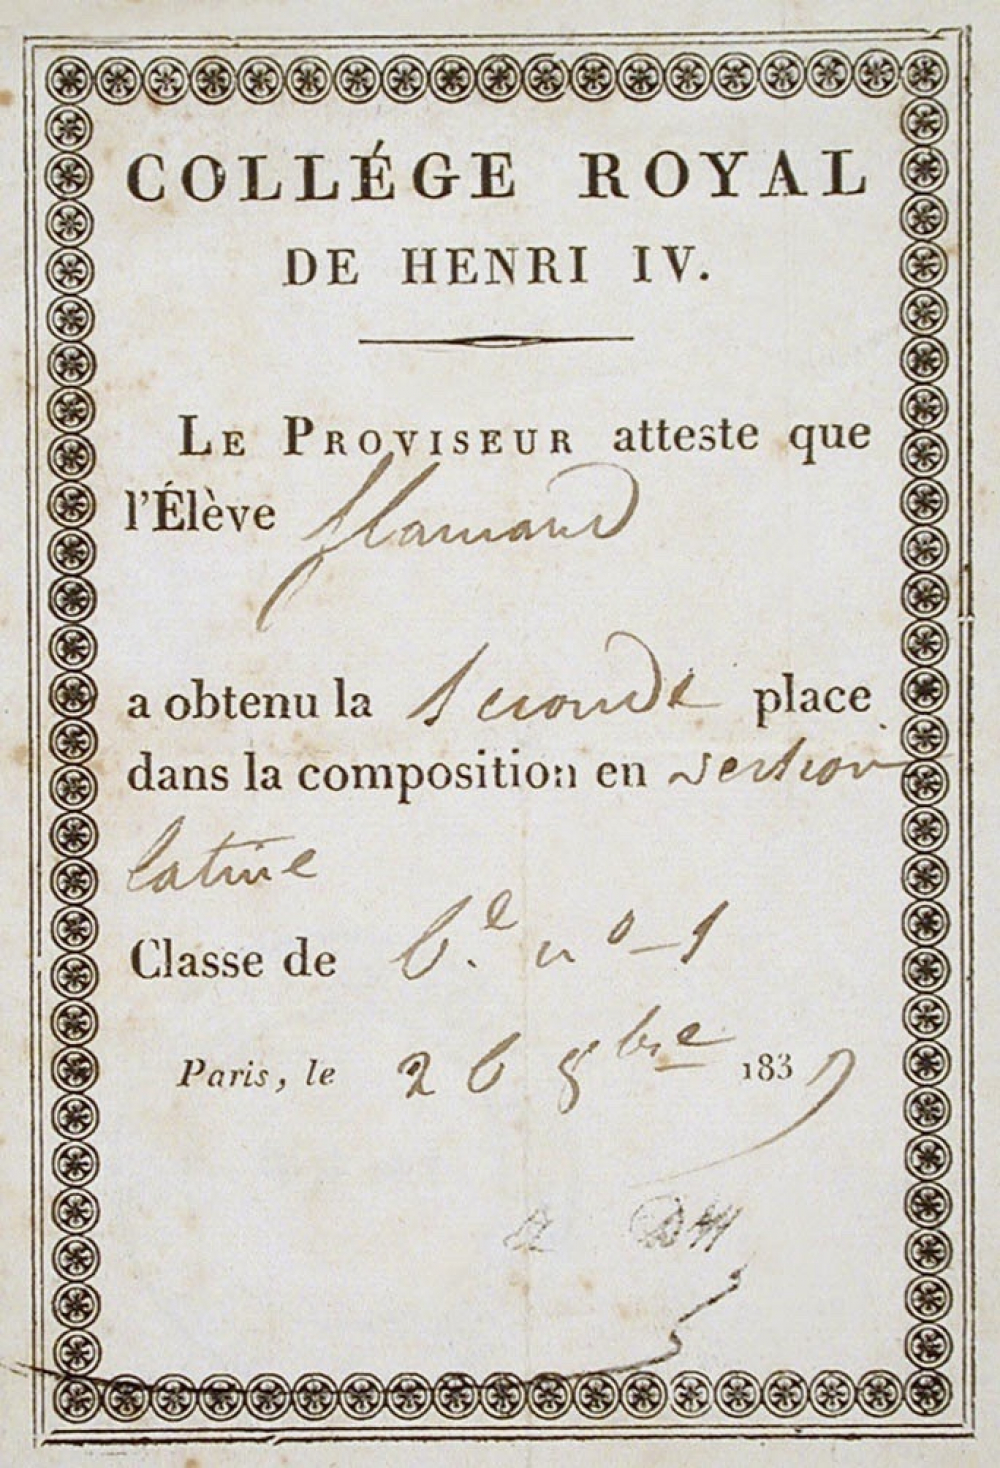 COLLÉGE ROYAL
DE HENRI IV.
LE PROVISEUR atteste que
l'Élève flamand
a obtenu la seconde place
dans la composition en version
latine
Classe de 6.e no-1
Paris, le 26 8bre 1837